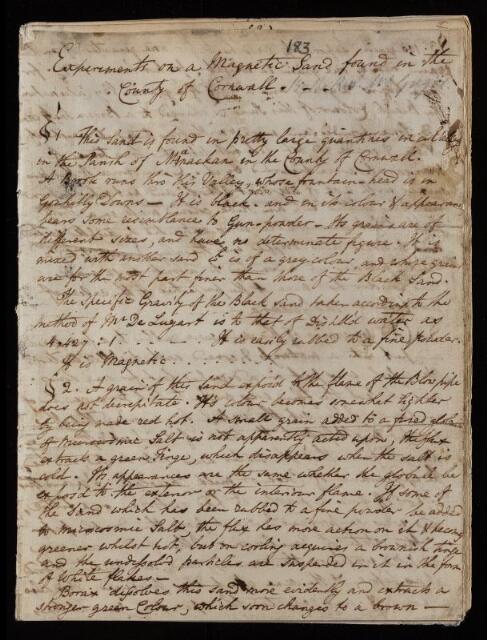 183
Experiments on a Magnetic Sand found in the
County of Cornwall.
§ 1. This Sand is found in pretty large quantities in a
in the Parish of Manackan in the County of Cornwall.
A Brook runs thro this Valley, whose fountain head is in
Gonhilly Downs — It is black and in its colour & appearance
bears some resemblance to Gun-powder — Its grains are of
different sizes, and have no determinate figure. It is
mixed with another sand is of a grey colour and whose grains
are for the most part finer than those of the Black Sand.
The Specific Gravity of the Black Sand taken according to the
method of Mr De Luyart is to that of Distilld water as
4.427 : 1. It is easily rubbed to a fine powder.
It is Magnetic
§ 2. A grain of this sand exposd to the flame of the Blowpipe
does not decrepitate. Its colour becomes somewhat lighter
by being made red hot. A small grain added to a fused globule
of Microcosmic Salt is not apparently acted upon, the flux
extracts a green tinge, which disappears when the salt is
cold. Its appearances are the same whether the globule be
exposd to the exterior or the interior flame. If some of
the Sand which has been rubbed to a fine powder be added
to Microcosmic Salt, the flux has more action on it & becomes
greener, whilst hot, but on cooling acquires a brownish tinge
and the undissolvd particles are suspended in it in the form
of white flakes —
Borax dissolves this sand more evidently and extracts a
stronger green Colour, which soon changes to a brown —